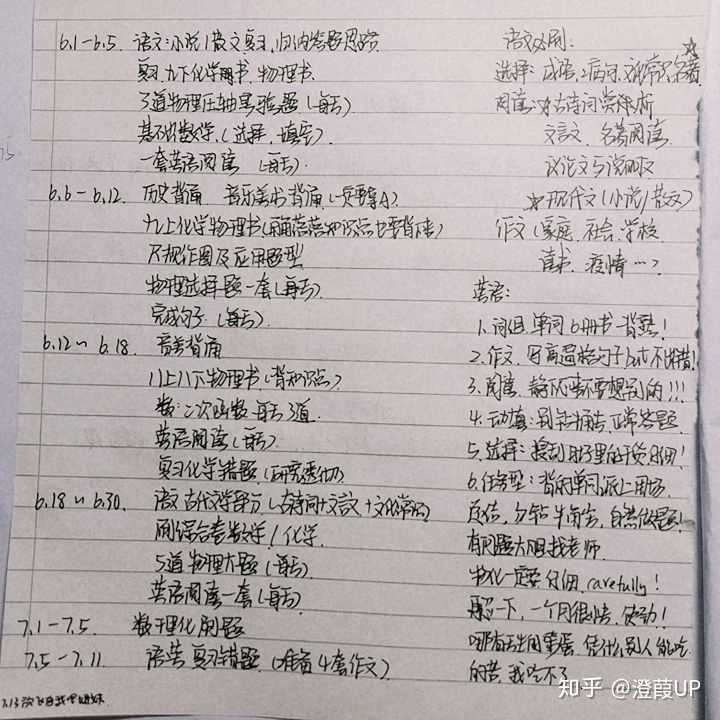 6.1-6.5. 语文:小说/散文复习,归纳答题思路
复习九下化学书,物理书.
3道物理压轴实验题(每天)
基础数学(选择,填空)
一套英语阅读 (每天).
6.6-6.12. 历史背诵 音乐美术背诵(一定要拿A)
九上化学物理书(知识点也要背下来)
尺规作图及应用题型
物理选择题一套(每天).
完成句子.(每天).
6.12~6.18. 音美背诵
八上八下物理书(背知识点)
数:二次函数 每天3道.
英语阅读(每天)
复习化学错题(研究透彻)
6.18~6.30. 语文古代文学部分(古诗词+文言文+文化常识)
刷综合卷数学/化学.
5道物理大题(每天)
英语阅读一套(每天)
7.1-7.5. 数理化刷题
7.5-7.11. 语英复习错题.(准备4套作文)
语文必刷:
选择:成语,病句,文化常识,名著
阅读:古诗词赏析
文言文、名著阅读.
议论文与说明文
☆现代文(小说/散文)
作文(家庭.社会.学校.
读书.疫情…)
英语:
1.词组,单词6册书一背熟!
2.作文.写高逼格句子but不出错!
3.阅读.静下心来不要想别的!!!
4.动填:别纠结,正常答题.
5.选择:
6.任务型:背的单词派上用场.
自信,勿钻牛角尖,自然做题!
有问题大胆找老师.
物化一定要仔细,carefully!
一下,一个月很快,使劲!
哪有天生用蛋,凭什么别人能吃
的苦,我吃不了
知乎 @澄葭UP